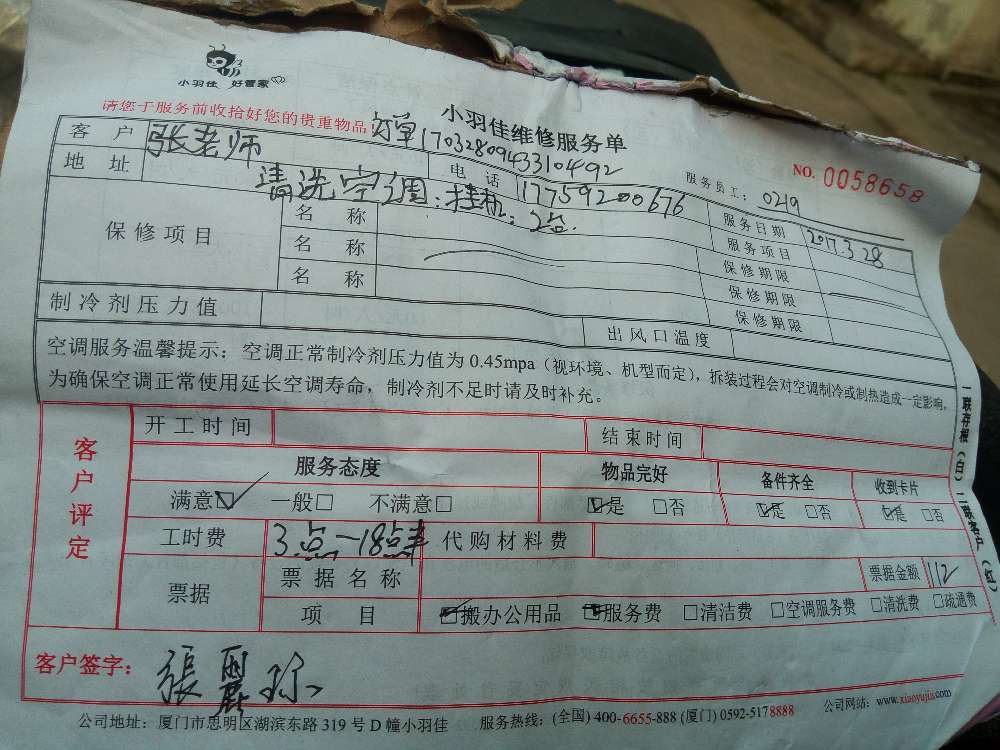 小羽佳 好管家
请您于服务前收拾好您的贵重物品
小羽佳维修服务单
订单17032809433104492
NO. 0058658
客户 张老师 电话 17759200676 服务员工: 0219
地址 服务日期 2017.3.28
清洗空调:挂机:2台.
保修项目 名称 服务项目
名称 保修期限
名称 保修期限
保修期限
制冷剂压力值 出风口温度
空调服务温馨提示:空调正常制冷剂压力值为0.45mpa(视环境、机型而定),拆装过程会对空调制冷或制热造成一定影响,
为确保空调正常使用延长空调寿命,制冷剂不足时请及时补充。
一联存根(白) 二联客户(红)
客户评定
开工时间 结束时间
服务态度 物品完好 备件齐全 收到卡片
满意☑ 一般□ 不满意□ ☑是 □否 ☑是 □否 ☑是 □否
工时费 3点-18点半 代购材料费
票据 票据名称 票据金额 112
项目 ☑搬办公用品 ☑服务费 □清洁费 □空调服务费 □清洗费 □疏通费
客户签字: 張麗珍
公司地址:厦门市思明区湖滨东路319号D幢小羽佳 服务热线:(全国)400-6655-888 (厦门)0592-5178888 公司网站:www.xiaoyujia.com